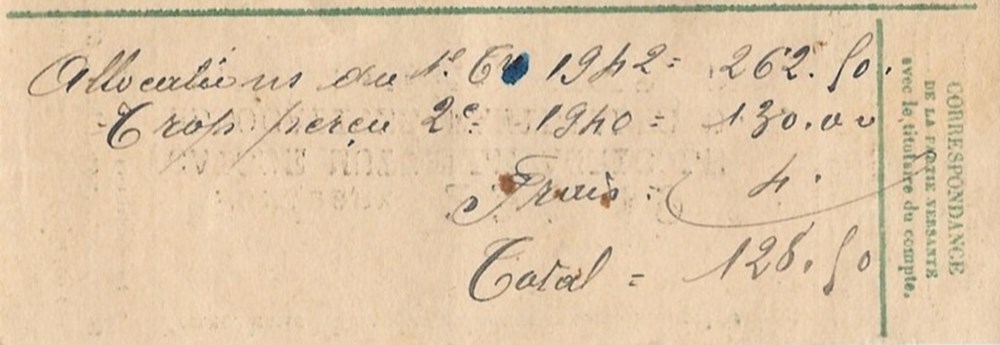 Allocations du 1e Tr 1942 = 262.50.
Trop perçu 2e = 1940 = 130.00
Frais : 4.
Total = 128.50
CORRESPONDANCE
DE LA PARTIE VERSANTE
avec le titulaire du compte.